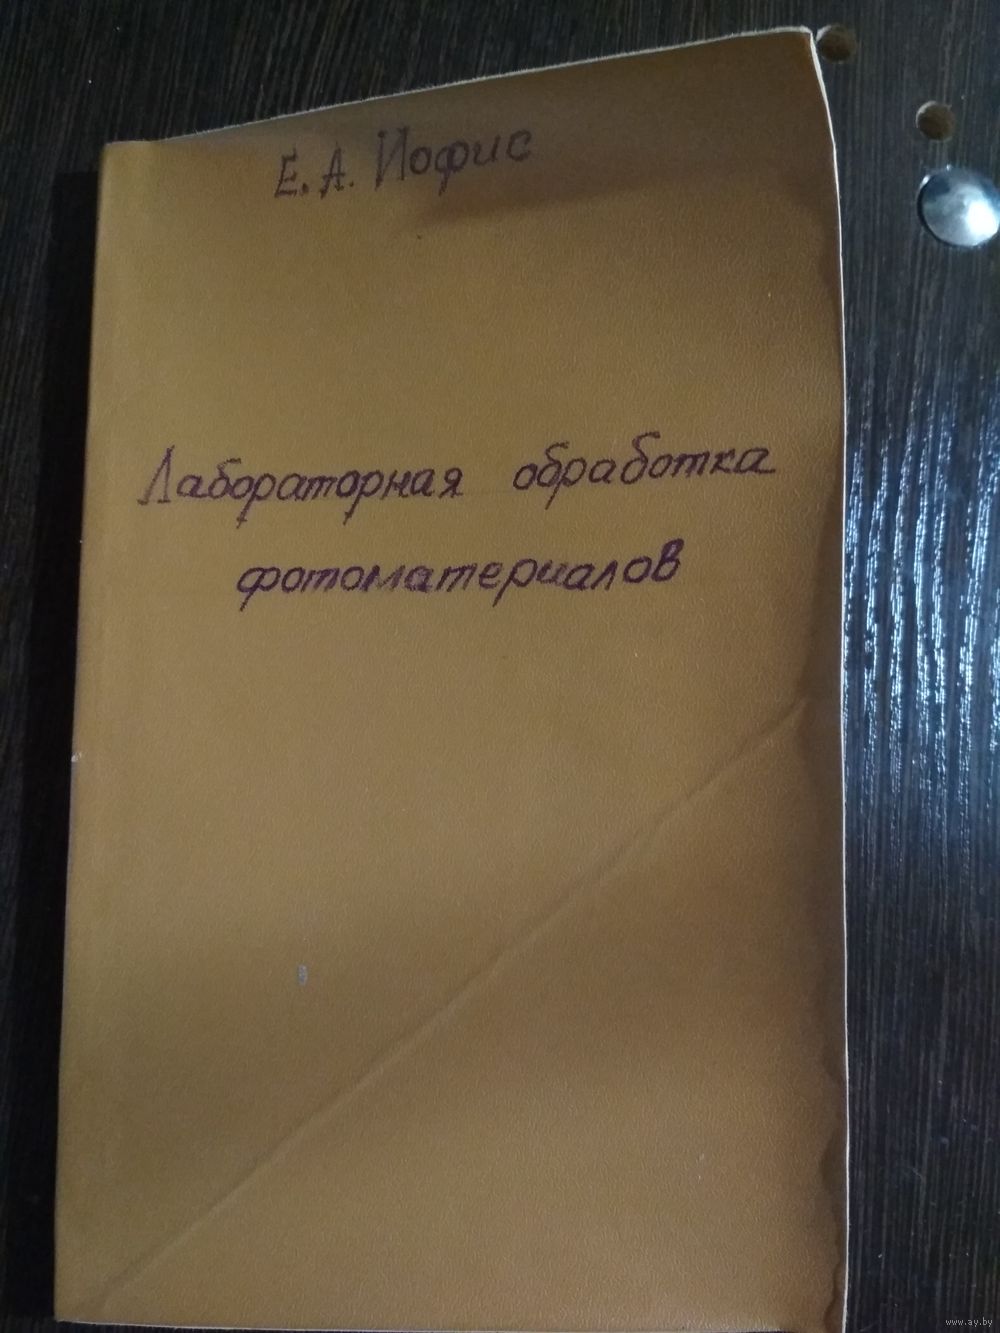 Е. А. Иофис
Лабораторная обработка
фотоматериалов
www.ay.by